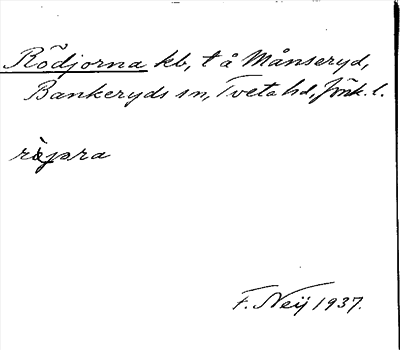 Rödjorna kb, t å Månseryd,
Bankeryds sn, Tveta hd, Jönk. l.
röjara
F. Neij 1937.